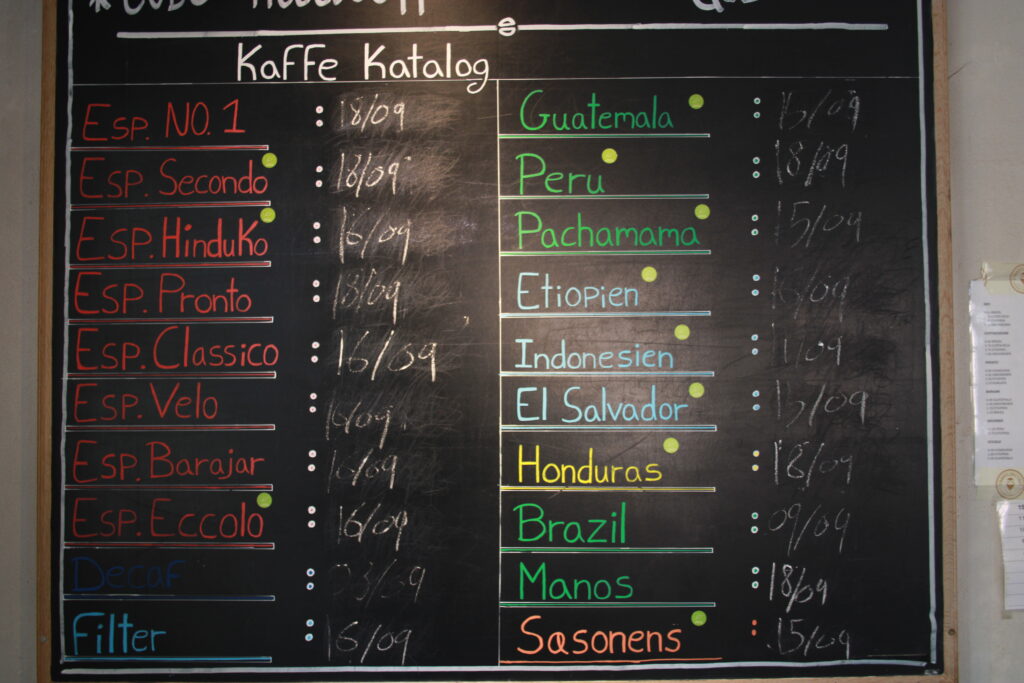 Kaffe Katalog
Esp. NO. 1 : 18/09
Esp. Secondo : 18/09
Esp. Hinduko : 16/09
Esp. Pronto : 18/09
Esp. Classico : 16/09
Esp. Velo : 16/09
Esp. Barajar : 16/09
Esp. Eccolo : 16/09
Decaf : 03/09
Filter : 16/09
Guatemala :
Peru : 18/09
Pachamama : 15/09
Etiopien : 16/09
Indonesien :
El Salvador : 15/09
Honduras : 18/09
Brazil : 09/09
Manos : 18/09
Sæsonens : 15/09